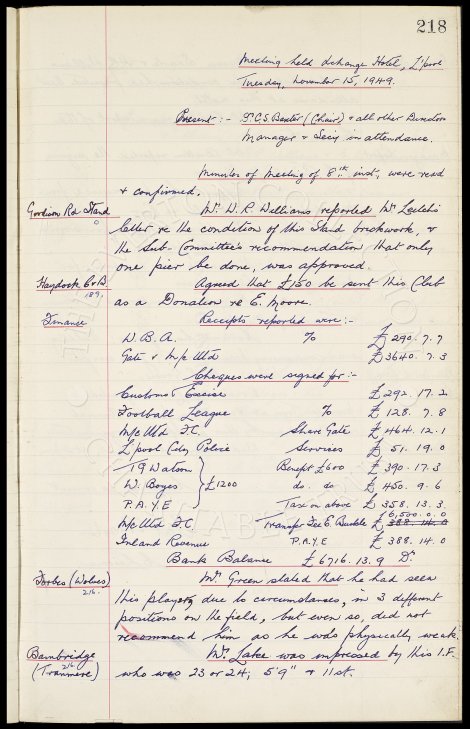 218
Meeting held Exchange Hotel, L'pool
Tuesday, November 15, 1949.
Present :- Dr. C.S. Baxter (Chair) & all other Directors
Manager & Secy in attendance.
Minutes of Meeting of 8th inst. were read
& confirmed.
Goodison Rd Stand Mr. W.R. Williams reported Mr. Leitch's
letter re the condition of this Stand brickwork, &
the Sub-Committee's recommendation that only
one pier be done, was approved.
Haydock C & B Agreed that £150 be sent this Club
189,
as a Donation re E. Moore.
Finance Receipts reported were :-
W.B.A. % £290. 7. 7
Gate v M/c Utd £3640. 7. 3
Cheques were signed for :-
Customs & Excise £292. 17. 2
Football League % £128. 7. 8
M/c Utd F.C. Share Gate £464. 12. 1
L'pool City Police Services £51. 19. 0
T G Watson Benefit £600 £390. 17. 3
W. Boyes £1200 do. do £450. 9. 6
P.A.Y.E Tax on above £358. 13. 3
M/c Utd F.C. Transfer Fee E Buckle £ 6,500. 0. 0 388. 14. 0
Inland Revenue P.A.Y.E £388. 14. 0
Bank Balance £6716. 13. 9 Dr.
Forbes (Wolves) Mr. Green stated that he had seen
216.
this player, due to circumstances, in 3 different
positions on the field, but even so, did not
recommend him as he was physically weak.
Bainbridge Mr. Lake was impressed by this I.F.
216
(Tranmere) who was 23 or 24; 5'9" & 11st.